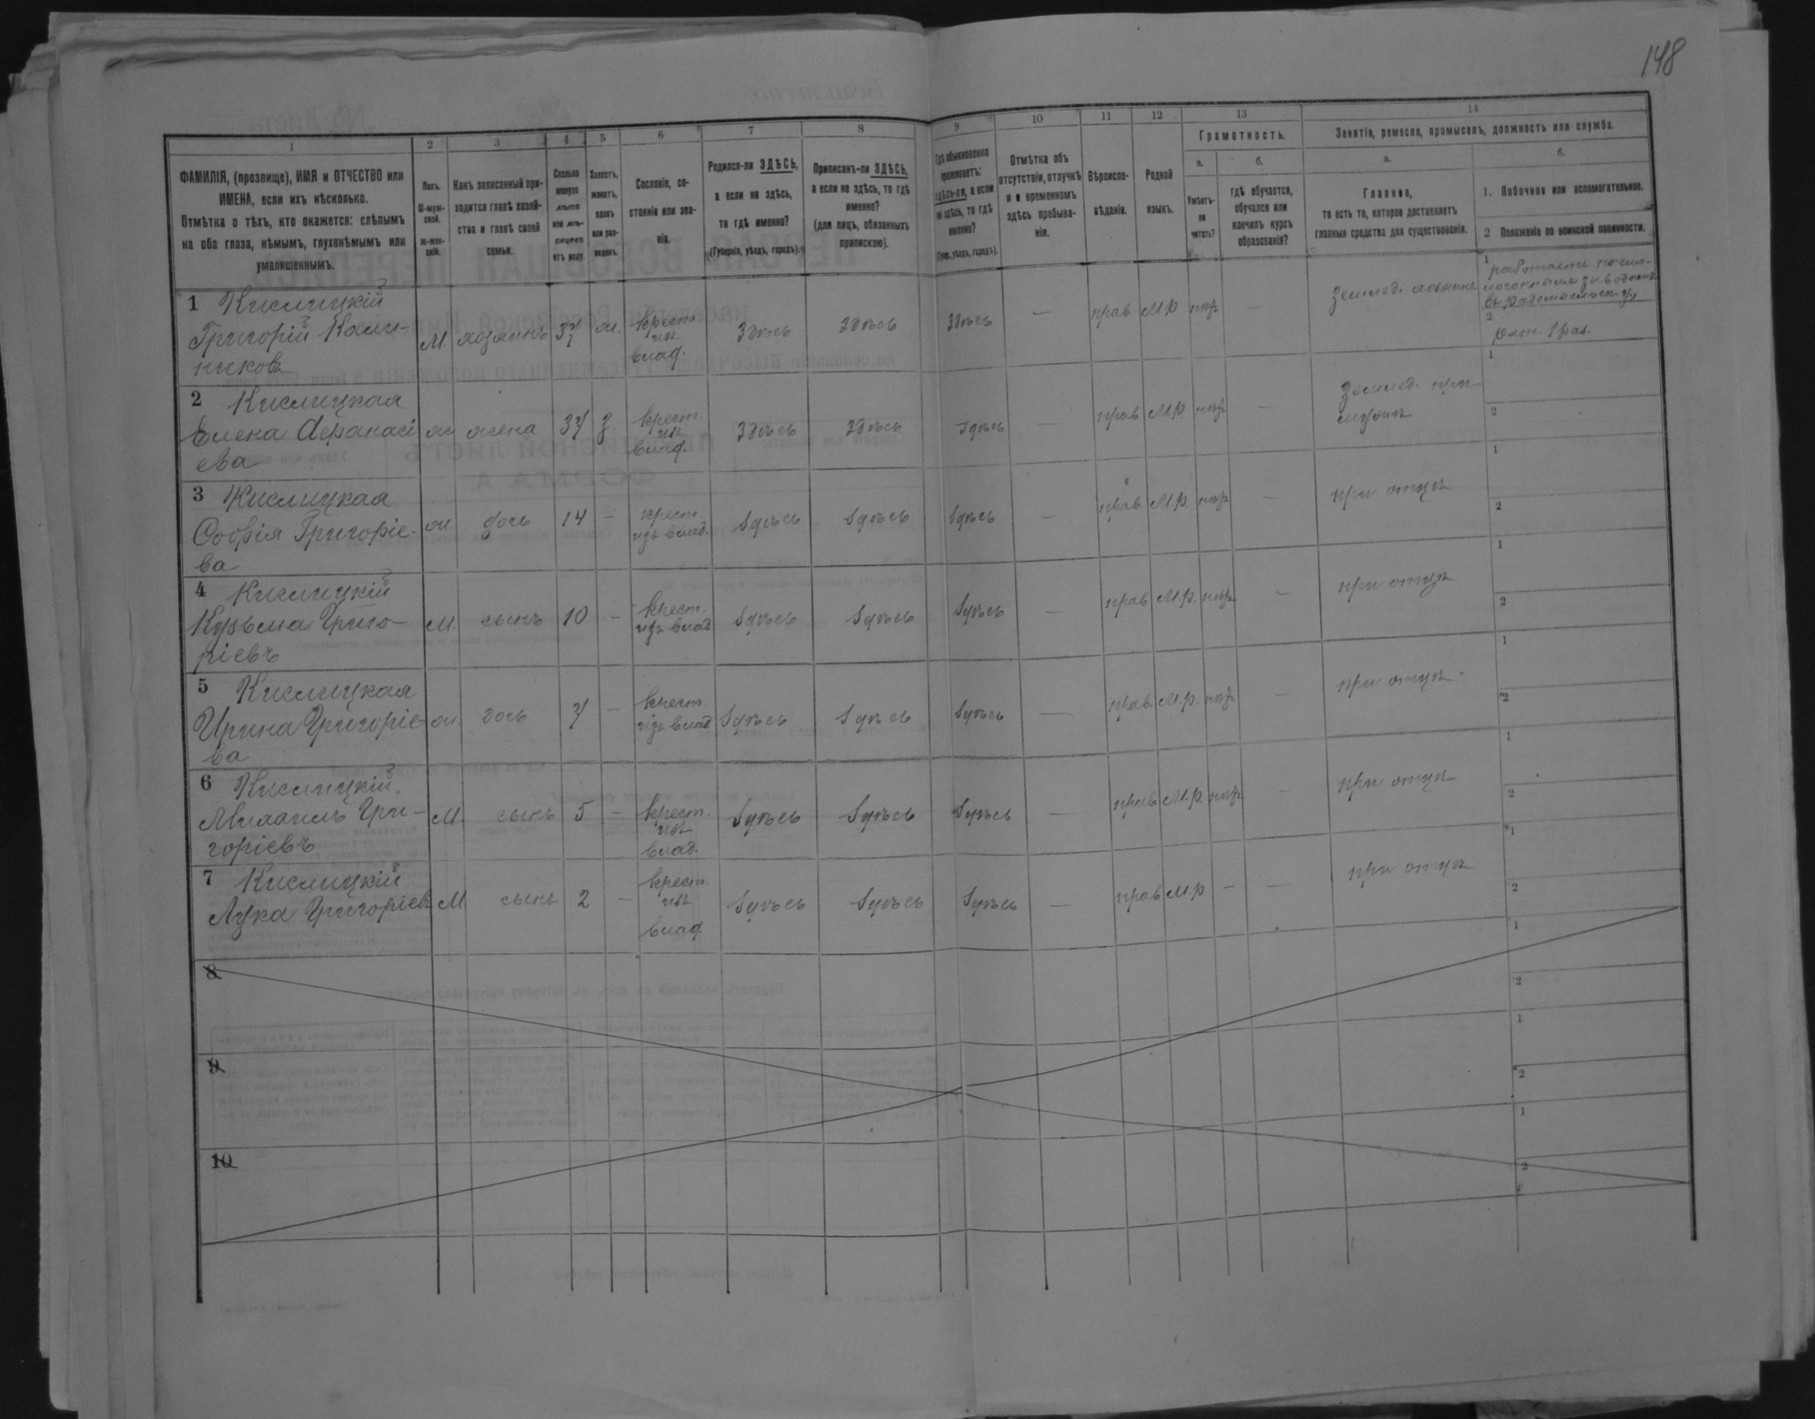 148
1 2 3 4 5 6 7 8 9 10 11 12 13 14
ФАМИЛІЯ, (прозвище), ИМЯ и ОТЧЕСТВО или
ИМЕНА, если ихъ нѣсколько.
Отмѣтка о тѣхъ, кто окажется: слѣпымъ
на оба глаза, нѣмымъ, глухонѣмымъ или
умалишеннымъ.
Полъ.
М-муж-
ской.
Ж-жен-
скій.
Какъ записанный при-
ходится главѣ хозяй-
ства и главѣ своей
семьи.
Сколько
минуло
лѣтъ
или мѣ-
сяцевъ
отъ роду.
Холостъ,
женатъ,
вдовъ
или раз-
веденъ.
Сословіе, со-
стояніе или зва-
ніе.
Родился-ли ЗДѢСЬ,
а если не здѣсь,
то гдѣ именно?
(Губернія, уѣздъ, городъ).
Приписанъ-ли ЗДѢСЬ,
а если не здѣсь, то гдѣ
именно?
(для лицъ, обязанныхъ
припискою).
Гдѣ обыкновенно
проживаетъ:
здѣсь-ли, а если
не здѣсь, то гдѣ
именно?
(Губ., уѣздъ, городъ).
Отмѣтка объ
отсутствіи, отлучкѣ
и о временномъ
здѣсь пребыва-
ніи.
Вѣроиспо-
вѣданіе.
Родной
языкъ.
Грамотность.
а.
Умѣетъ-
ли
читать?
б.
гдѣ обучается,
обучался или
кончилъ курсъ
образованія?
Занятіе, ремесло, промыселъ, должность или служба.
а.
Главное,
то есть то, которое доставляетъ
главныя средства для существованія.
б.
1. Побочное или вспомогательное.
2 Положеніе по воинской повинности.
1 Кислицкій
Григорій Кали-
никовъ
М. хозяинъ 37 ж. крест. изъ влад. здѣсь здѣсь здѣсь — прав М.р нѣтъ — землед. хозяинъ
1 работаетъ
2 1 раз.
2 Кислицкая
Елена Афанасі
ева
ж жена 37 з. крест. изъ влад. здѣсь здѣсь здѣсь — прав М.р нѣтъ — землед. при мужѣ
1
2
3 Кислицкая
Софія Григоріе-
ва
ж. дочь 14 — крест. изъ влад. здѣсь здѣсь здѣсь — прав. М.р. нѣтъ — при отцѣ
1
2
4 Кислицкій
Кузьма Григо-
ріевъ
М. сынъ 10 — крест. изъ влад здѣсь здѣсь здѣсь — прав М.р. нѣтъ — при отцѣ
1
2
5 Кислицкая
Ирина Григоріе
ва
ж. дочь 7 — крест. изъ влад здѣсь здѣсь здѣсь — прав М.р. нѣтъ — при отцѣ
1
2
6 Кислицкій
Михаилъ Гри-
горіевъ
М. сынъ 5 — крест. изъ влад. здѣсь здѣсь здѣсь — прав М.р. нѣтъ — при отцѣ
1
2
7 Кислицкій
Лука Григоріевъ
М сынъ 2 — крест. изъ влад здѣсь здѣсь здѣсь — прав М.р — — при отцѣ
1
2
8
1
2
9
1
2
10
1
2